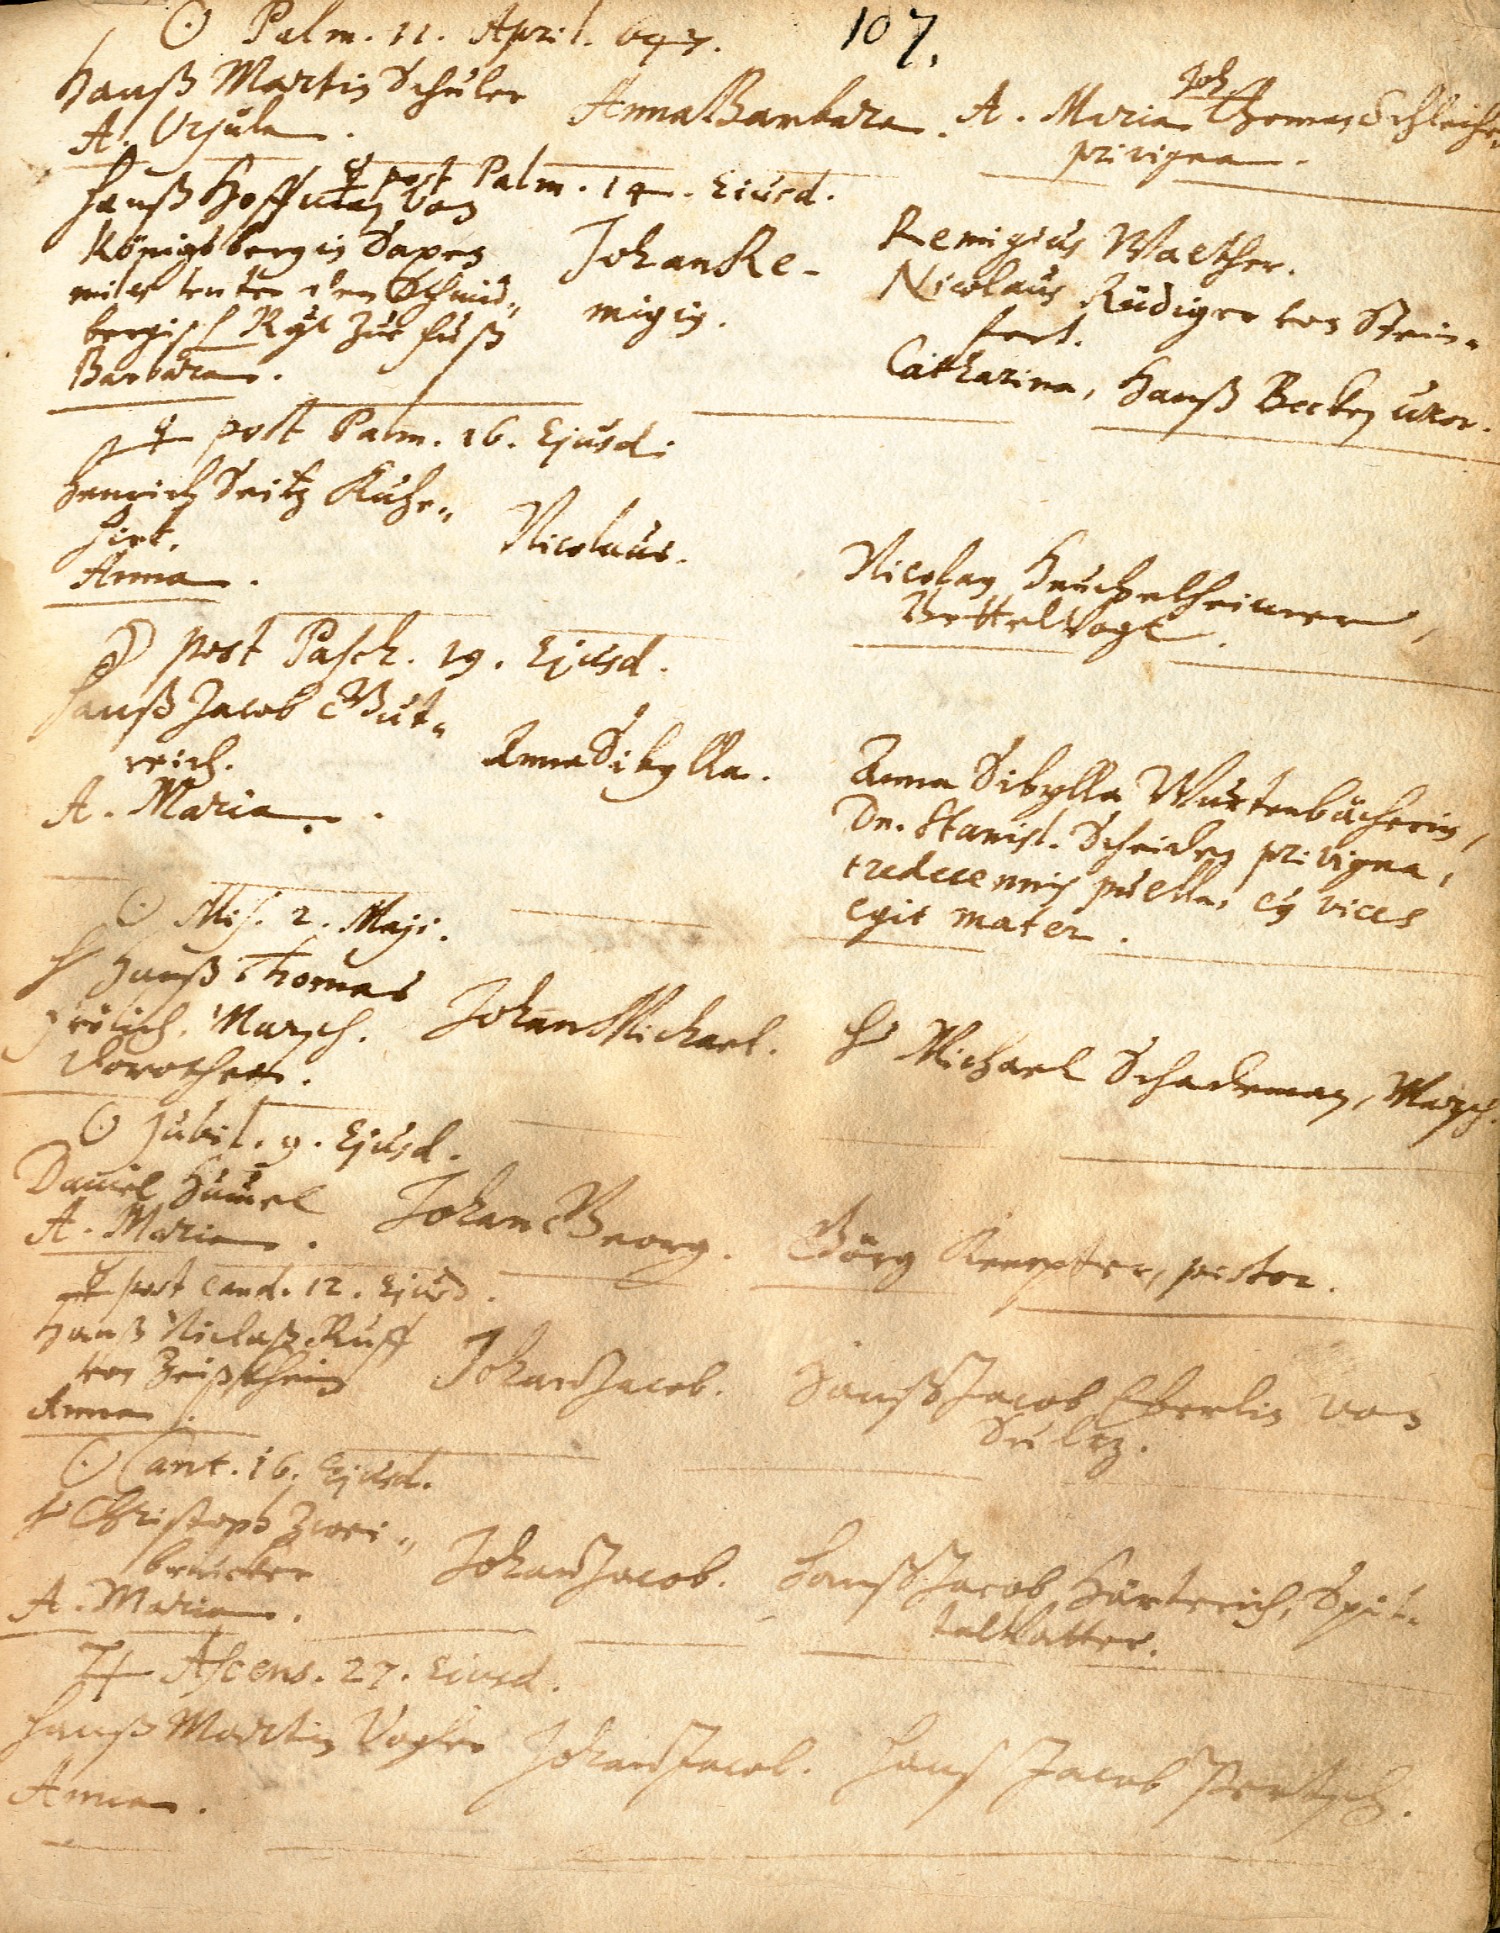 ☉ Palm. 11. April. 647.
107.
Hanß Martin Schüler
A. Ursula.
Anna Barbara.
A. Maria Joh. Thomas Schleiche
privigna.
☿ post Palm. 14. Eiusd.
Hanß Hoffman von
Königsbergin
unter dem Schmid„
bergisch Rgt zue fuß
Barbara.
Johan Re-
migig.
Remigius Walther.
Nicolaus Rüdiger von Stein-
fert.
Catharina, Hanß Becken uxor.
♀ post Palm. 16. Ejusd:
Henrich Seitz Kuhe„
hirt.
Anna.
Nicolaus.
Nicolag Heuchelheimer,
Bettelvogt.
☽ post Pasch. 19. Ejusd.
Hanß Jacob Gut„
reich.
A. Maria.
Anna Sibylla.
Anna Sibylla Wurtenbächerin,
Dn. Stanisl. Scheiden privigna,
tredecennis puella, cg vices
egit mater.
☉ Mis. 2. Maji.
H Hanß Thomas
Frölich. March.
Dorothea.
Johan Michael.
H Michael Schademan, March.
☉ Jubil. 9. Ejusd.
Daniel Humel
A. Maria.
Johan Georg.
Görg Kempffer, pistor.
☿ post Cand. 12. Ejusd.
Hanß Niclaß Ruff
von
Anna.
Johan Jacob.
Hanß Jacob Eberlin von
Sultz.
☉ Cant. 16. Ejusd.
H Christoph Zwei„
brucker
A. Maria.
Johan Jacob.
Hanß Jacob Härterich, Spit„
talvatter.
♃ Ascens. 27. Eiusd.
Hanß Martin Vogler
Anna.
Johan Jacob.
Hanß Jacob